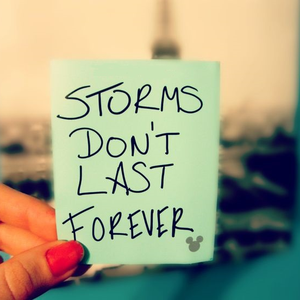 STORMS
DON'T
LAST
FOREVER